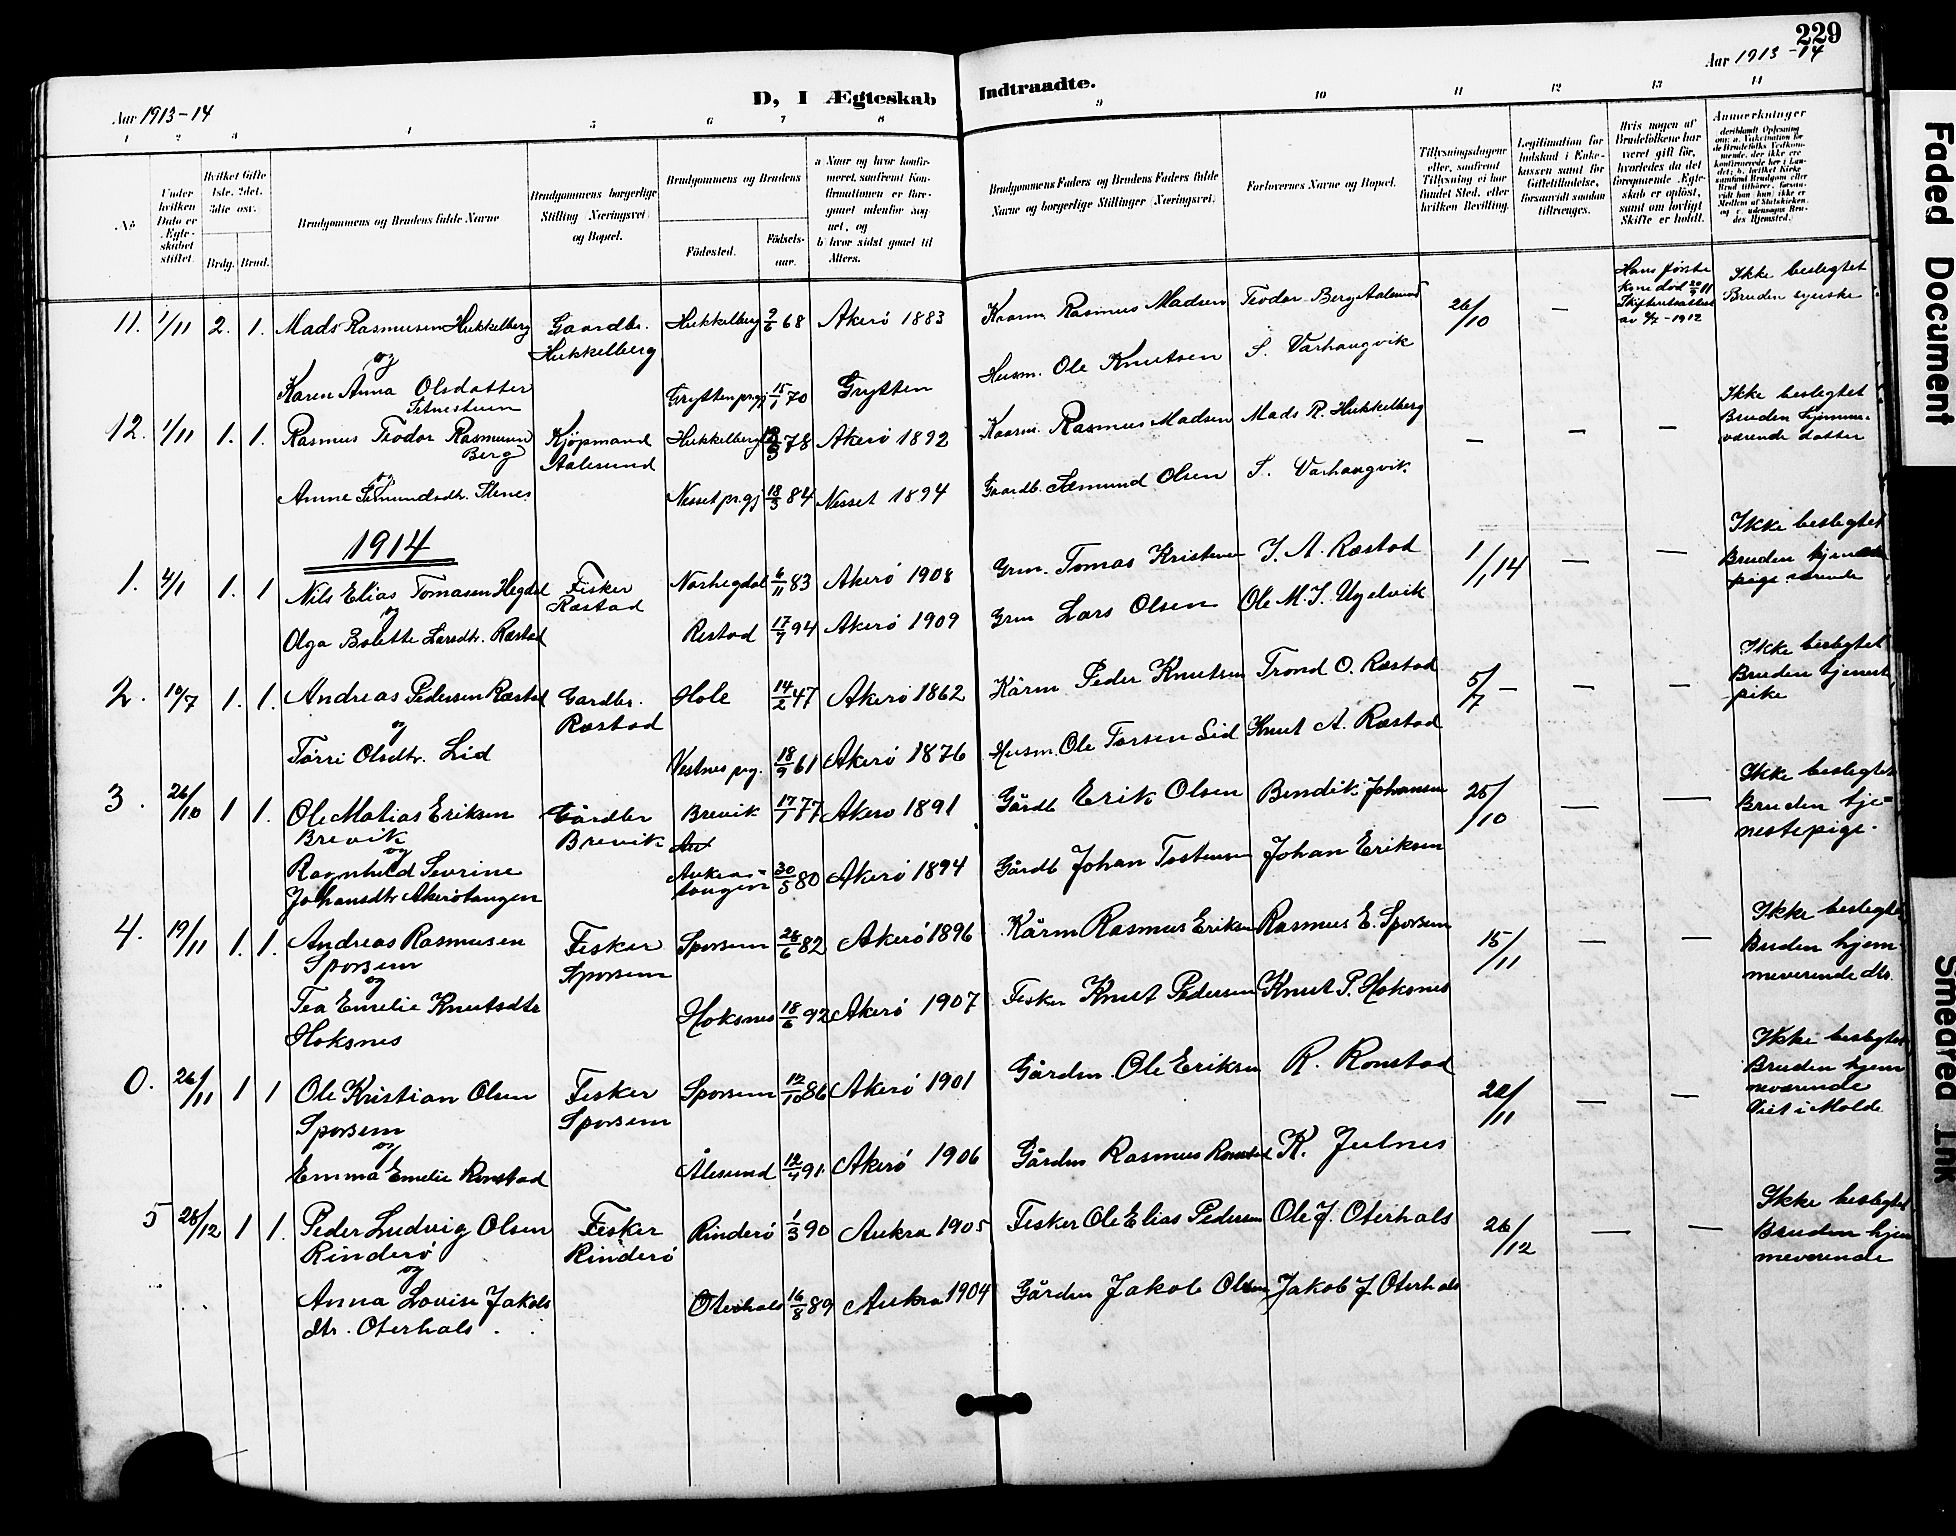 229
Aar 1913-14
Aar 1913-14
D, I Ægteskab Indtraadte.
1 2 3 4 5 6 7 8 9 10 11 12 13 14
No
Under hvilken Dato er Ægteskabet stiftet.
Hvilket Gifte 1ste, 2det, 3die osv.
Brdg. Brud.
Brudgommens og Brudens fulde Navne
Brudgommens borgerlige Stilling (Næringsvei) og Bopæl.
Brudgommens og Brudens
Födested.
Födselsaar.
a Naar og hvor konfirmeret, samfremt Konfirmationen er foregaaet udenfor sognet, og
b hvor sidst gaaet til Alters.
Brudgommens Faders og Brudens Faders fulde Navne og borgerlige Stillinger (Næringsvei).
Forlovernes Navne og Bopæl.
Tillysningsdagene eller, saafremt Tillysning ei har fundet Sted, efter hvilken Bevilling.
Legitimation for Indskud i Enkekassen samt for Giftetilladelse, forsaavidt saadan tiltrænges.
Hvis nogen af Brudefolkene har været gift för, hvorledes da det foregaaende Ægteskab er oplöst, samt om lovligt Skifte er holdt.
Anmærkninger
11. 1/11 2. 1. Mads Rasmusen Hukkelberg
og
Karen Anna Olsdatter
Gaardbr.
Hukkelberg
Hukkelberg 9/6 68 Akerö 1883
Grytten prgj 15/1 70 Grytten
Kaarm. Rasmus Madsen
Husm. Ole Knutsen
Teodor Berg Aalesund
S. Varhaugvik
26/10 —
Hans förste
Kone död
Ikke beslegtet
Bruden
12. 1/11 1. 1. Rasmus Teodor Rasmusen
Berg
og
Anne Semundsdtr. Stenes
Kjöpmand
Aalesund
Hukkelberg 78 Akerö 1892
Nesset prgj 18/3 84 Nesset 1894
Kaarm. Rasmus Madsen
Gaardb. Semund Olsen
Mads R. Hukkelberg
S. Varhaugvik
— — —
Ikke beslegtet
Bruden hjemme-
værende datter
1914
1. 4/1 1. 1 Nils Elias Tomasen Hegdal
og
Olga Bolette Larsdtr. Ræstad
Fisker
Ræstad
Norhegdal 6/11 83 Akerö 1908
Restad 17/7 94 Akerö 1909
Grm. Tomas Kristensen
Grm Lars Olsen
J. A. Ræstad
Ole M. J. Ugelvik
1/1 14 — —
Ikke beslegtet
Bruden
2. 10/7 1. 1. Andreas Pedersen Ræstad
og
Törri Olsdtr. Lid
Gardbr.
Ræstad
Hole 14/2 47 Akerö 1862
Vestnes prg. 18/9 61 Akerö 1876
Kårm Peder Knutsen
Husm. Ole Torsen Lid
Trond O. Ræstad
Knut A. Ræstad
5/7 — — —
Ikke beslegtet
Bruden tjenest
pike
3. 26/10 1 1. Ole Matias Eriksen
Brevik
og
Ragnhild Severine
Johansdtr Akerötangen
Gårdbr
Brevik
Brevik 17/7 77 Akerö 1891
Aukra-
tangen 30/5 80 Akerö 1894
Gårdb Erik Olsen
Gårdb Johan Tostensen
Bendik Johansen
Johan Eriksen
25/10 — —
Ikke beslegtet
Bruden tje=
nestepige.
4. 19/11 1. 1. Andreas Rasmusen
Sporsem
og
Tea Emelie Knutsdtr
Hoksnes
Fisker
Sporsem
Sporsem 28/6 82 Akerö 1896
Hoksnes 18/6 92 Akerö 1907
Kårm Rasmus Eriksen
Fisker Knut Pedersen
Rasmus E. Sporsem
Knut P. Hoksnes
15/11 — —
Ikke beslegtet
Bruden hjem
meverende dtr.
0. 26/11 1 1 Ole Kristian Olsen
Sporsem
og
Emma Emelie Ronstad
Fisker
Sporsem
Sporsem 12/10 86 Akerö 1901
Ålesund 12/4 91 Akerö 1906
Gårdm. Ole Eriksen
Gårdm Rasmus Ronstad
R. Ronstad
K. Julnes
22/11 — —
Ikke beslegtet
Bruden hjem
meværende
Viet i Molde
5 28/12 1 1. Peder Ludvig Olsen
Rinderö
og
Anna Lovise Jakobs
dtr. Oterhals.
Fisker
Rinderö
Rinderö 1/3 90 Aukra 1905
Oterhals 16/8 89 Aukra 1904
Fisker Ole Elias Pedersen
Gårdm Jakob Olsen
Ole J. Oterhals
Jakob J. Oterhals
26/12 — —
Ikke beslegtet
Bruden hjem
meverende
Faded Document
Smeared Ink